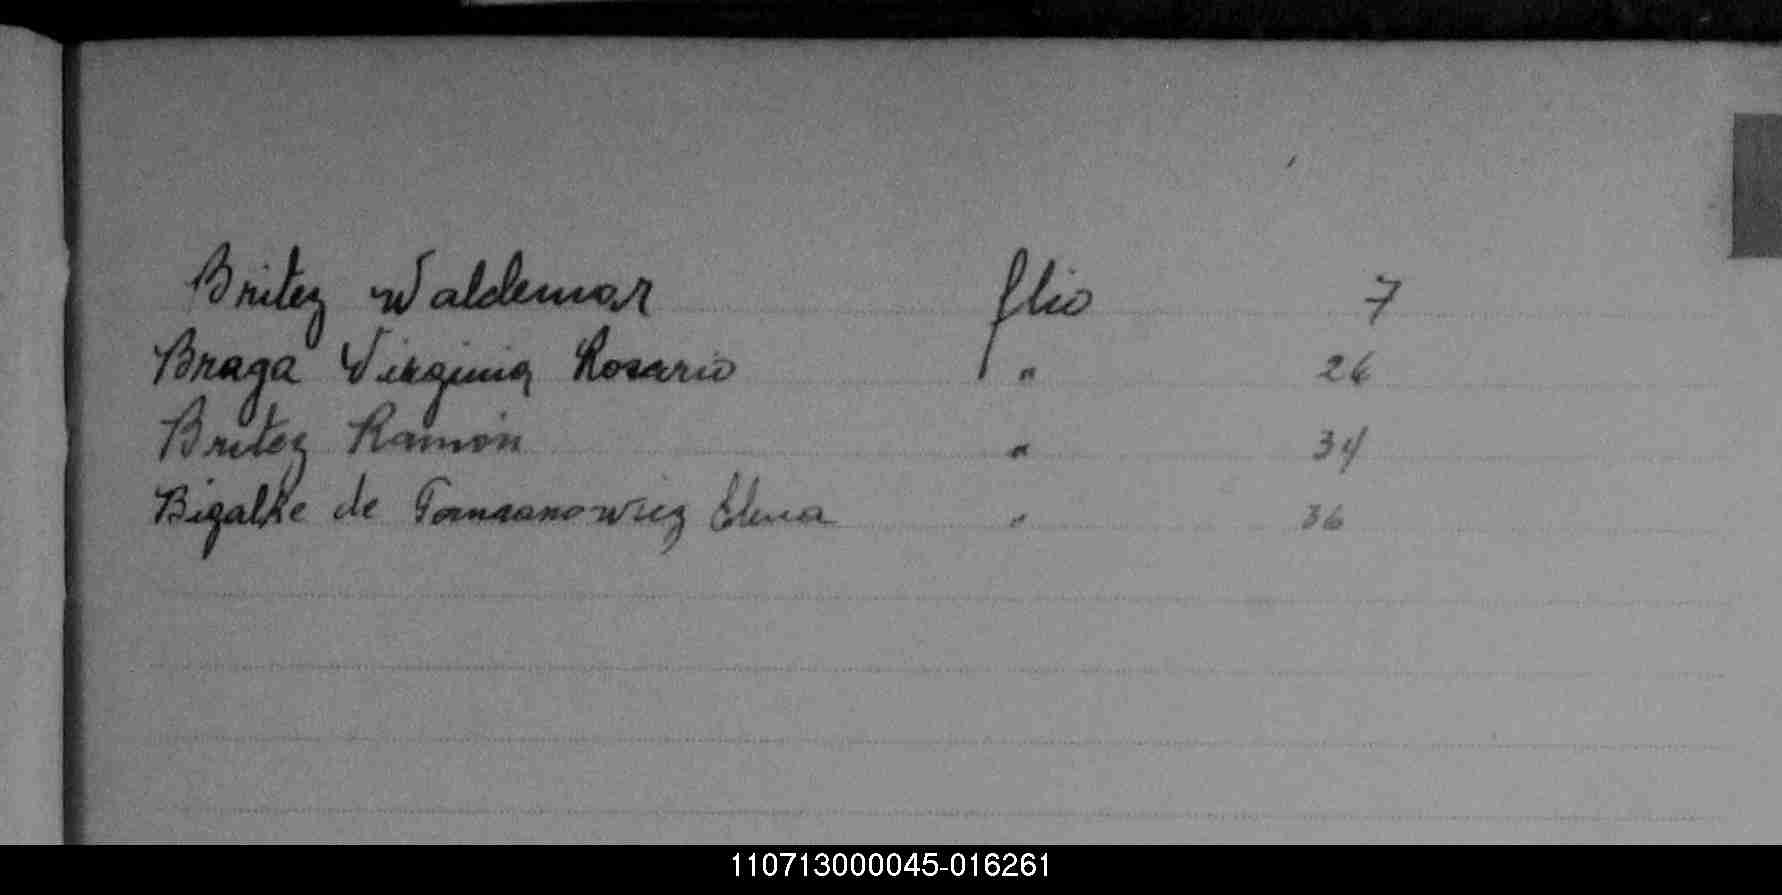 Britez Waldemar flio 7
Braga Virginia Rosario " 26
Britez Ramón " 34
Bigalke de Tomsanowiez Elena " 36
110713000045-016261